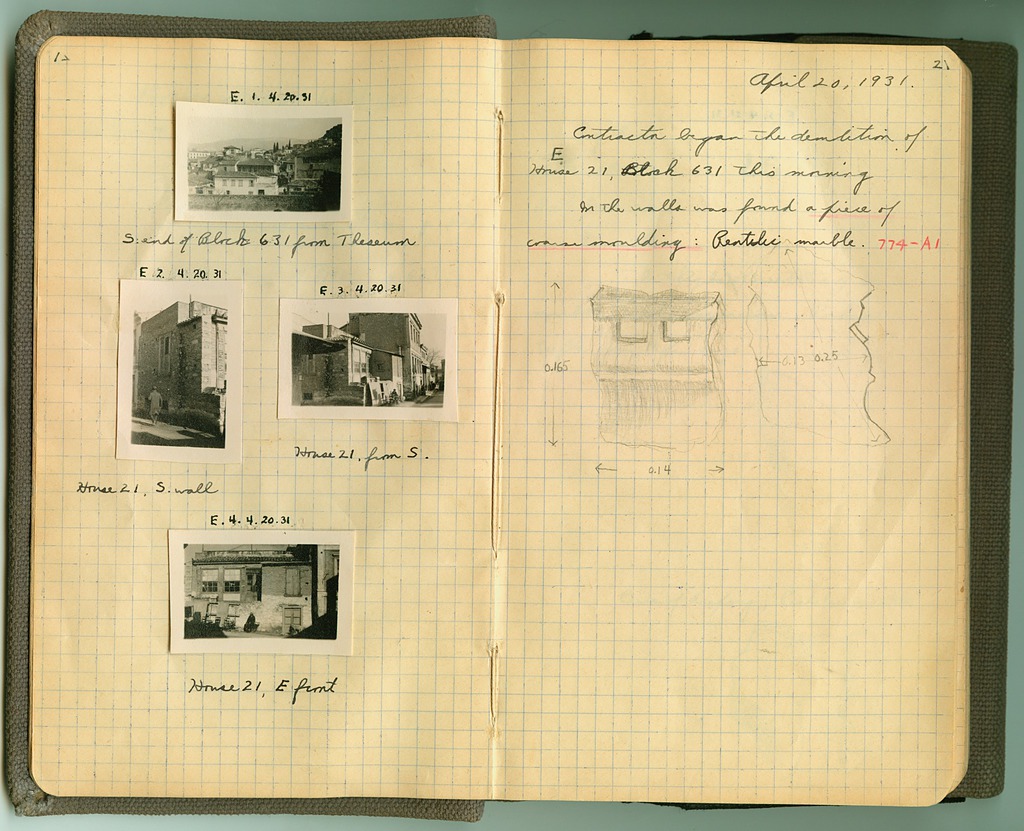 12
E. 1. 4. 20. 31
S. end of Block 631 from Theseum
E. 2. 4. 20. 31
E. 3. 4. 20. 31
House 21, from S.
House 21, S. wall
E. 4. 4. 20. 31
House 21, E front
21
April 20, 1931.
Contractor began the demolition of
E
House 21, Block 631 this morning
In the walls was found a piece of
coarse moulding: Pentelic marble. 774-A1
0.165
0.13 0.25
0.14